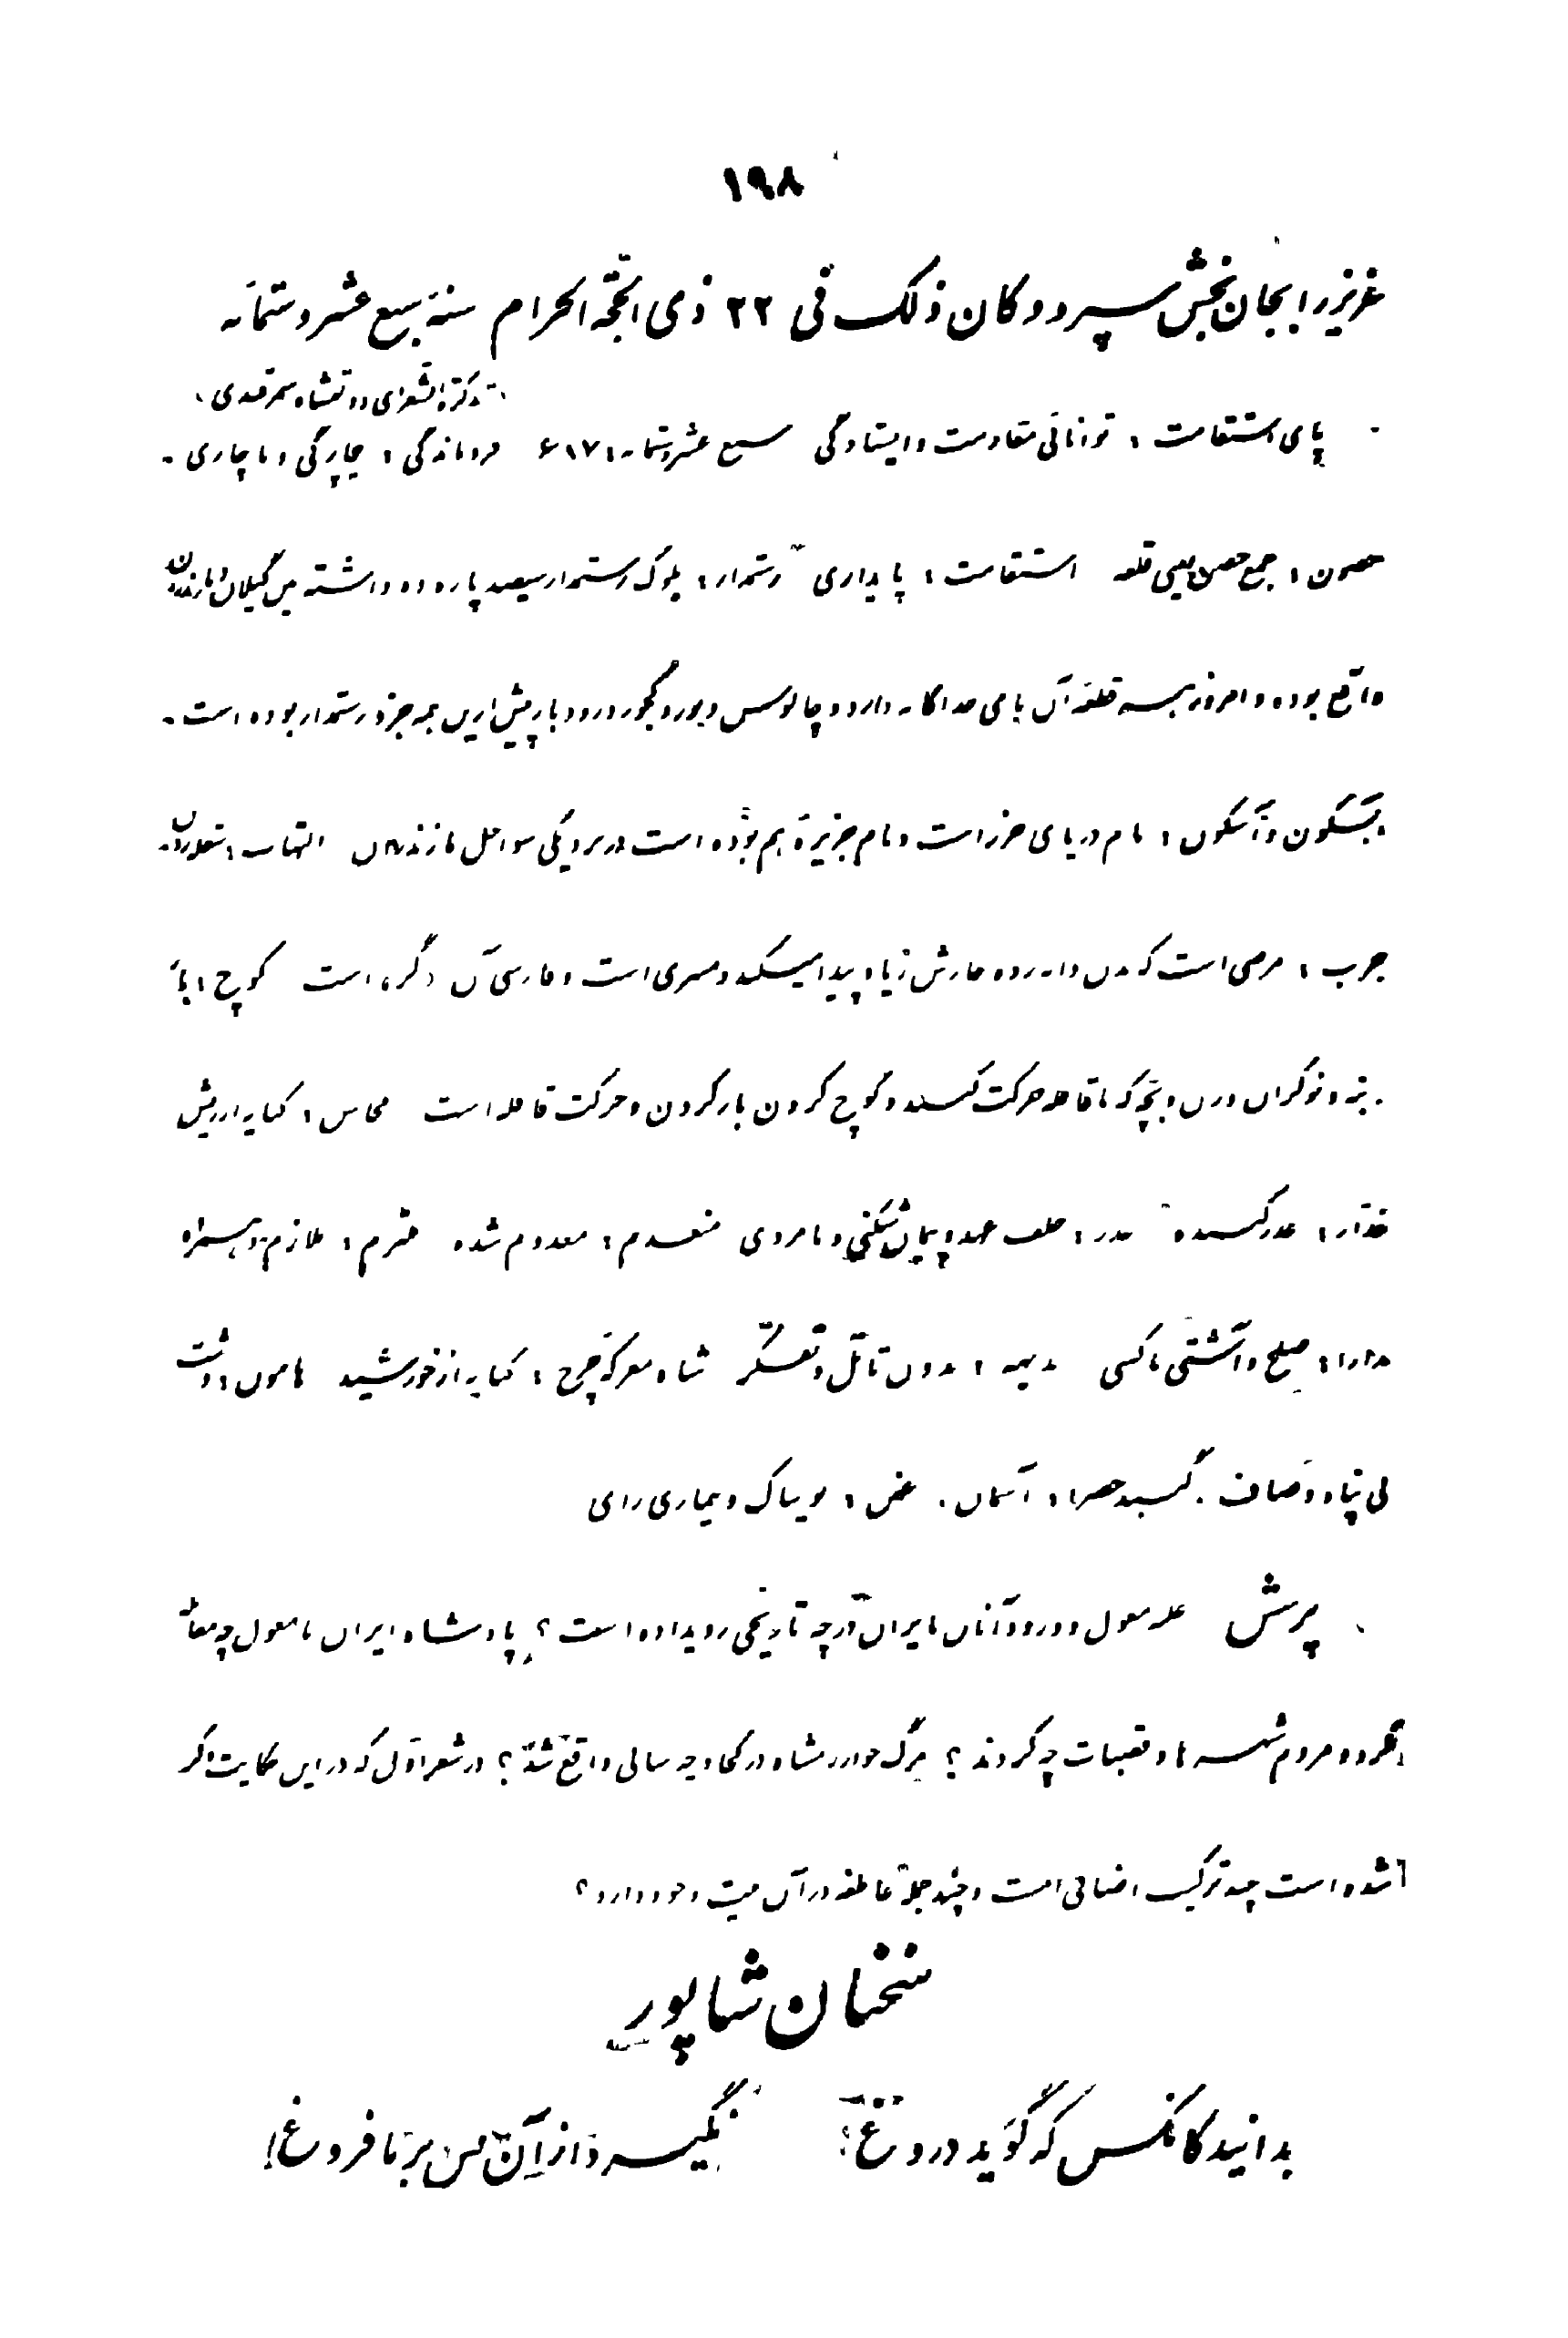 ۱۹۸
عزیز را بجان بخش سپرد و کان ذلک فی ۲۲ ذی الحجّه الحرام سنهٔ سبع عشر و ستمائه
تذکرة الشعرای دولتشاه سمرقندی
پای استقامت ، توانائی مقاومت و ایستادگی سبع عشر و ستمائه ، ۶۱۷ فروماندگی ، بیچارگی و ناچاری .
حصون ، جمع حصن یعنی قلعه استقامت ، پایداری رستمدار ، بلوک رستمدار سیصد پاره ده داشته بین گیلان و مازندران
واقع بوده و امروز هر قلعهٔ آن نامی جداگانه دارد و چالوس و نور و کجور و رودبار پیش ازین همه جزو رستمدار بوده است .
آبسکون و آسکون ، نام دریای خزر است و نام جزیرهٔ هم بوده است در نزدیکی سواحل مازندران التهاب ، شعله‌وری .
جرب ، مرضی است که بدن دانه زده خارش زیاد پیدا میکند و مسری است و فارسی آن «گر» است کوچ ،
بنه و نوکران و زن و بچه که با قافله حرکت کنند و کوچ کردن بار کردن و حرکت قافله است محاسن ، کنایه از ریش
غدّار ، غدر کننده غدر ، خلف عهد و پیمان شکنی و نامردی منعدم ، معدوم شده ملازم و همراه
مدارا ، صلح و آشتی با کسی بدیهه ، بدون تأمّل و تفکّر شاه معرکهٔ چرخ ، کنایه از خورشید هامون ، دشت
بی‌پناه و صاف . گنبد خضرا ، آسمان . و بیماری زای
پرسش علّه مغول و ورود آنان بایران در چه تاریخی رویداده است ؟ پادشاه ایران با مغول چه معامله
کرد و مردم شهرها و قصبات چه کردند ؟ مرگ خوارزمشاه در کجا و چه سالی واقع شد ؟ در شعر اوّل که در این حکایت ذکر
شده است چند ترکیب اضافی است و چند جملهٔ عاطفه در آن بیت وجود دارد ؟
سخنان شاپور
بدانید کانکس که گوید دروغ ؛ نگیرد از آن پس بر ما فروغ !